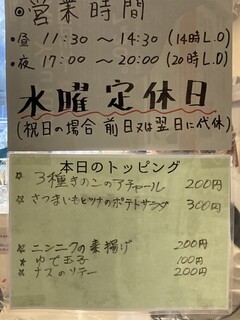 ◎営業時間
・昼 11:30 〜 14:30 (14時L.O)
・夜 17:00 〜 20:00 (20時L.O)
水曜 定休日
(祝日の場合 前日又は翌日に代休)
本日のトッピング
☆ 3種きのこのアチャール 200円
☆ さつまいもとツナのポテトサラダ 300円
☆ ニンニクの素揚げ 200円
☆ ゆで玉子 100円
☆ ナスのソテー 200円